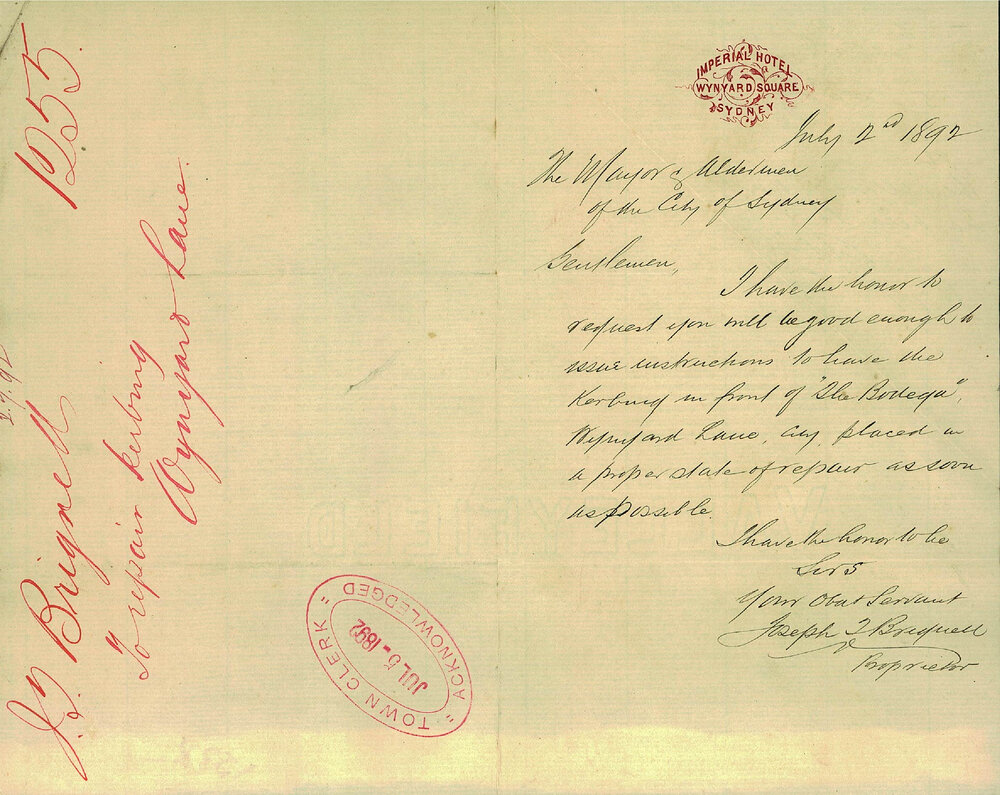 1255.
J. J. Brignell
To repair kerbing
Wynyard Lane.
"TOWN CLERK"
JUL 5-1892
"ACKNOWLEDGED"
IMPERIAL HOTEL
WYNYARD SQUARE
SYDNEY
July 2nd 1892
The Mayor & Aldermen
of the City of Sydney
Gentlemen,
I have the honor to
request you will be good enough to
issue instructions to have the
Kerbing in front of "The Bodega",
Wynyard Lane, City, placed in
a proper state of repair as soon
as possible.
I have the honor to be
Sirs
Your Obdt Servant
Joseph J Brignell
Proprietor